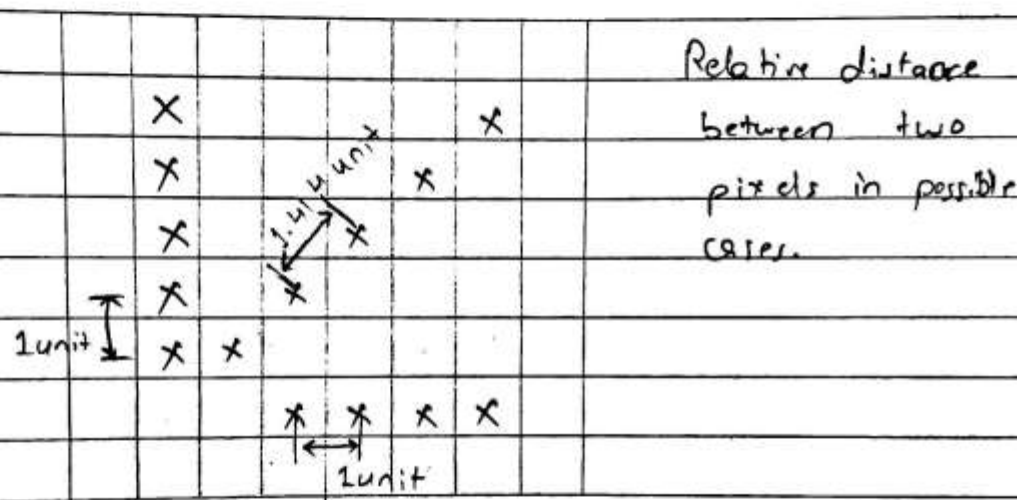 Relative distance
between two
pixels in possible
cases.
1.414 unit
1unit
1unit